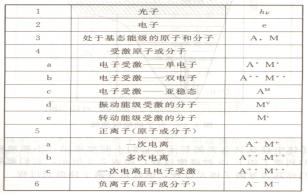 1 光子 hν
2 电子 e
3 处于基态能级的原子和分子 A、M
4 受激原子或分子
a 电子受激——单电子 A* M*
b 电子受激——双电子 A** M**
c 电子受激——亚稳态 Aᴹ
d 振动能级受激的分子 Mᵛ
e 转动能级受激的分子
5 正离子(原子或分子)
a 一次电离 A⁺ M⁺
b 多次电离 A⁺⁺ M⁺⁺
c 一次电离且电子受激
6 负离子(原子或分子) A⁻ M⁻